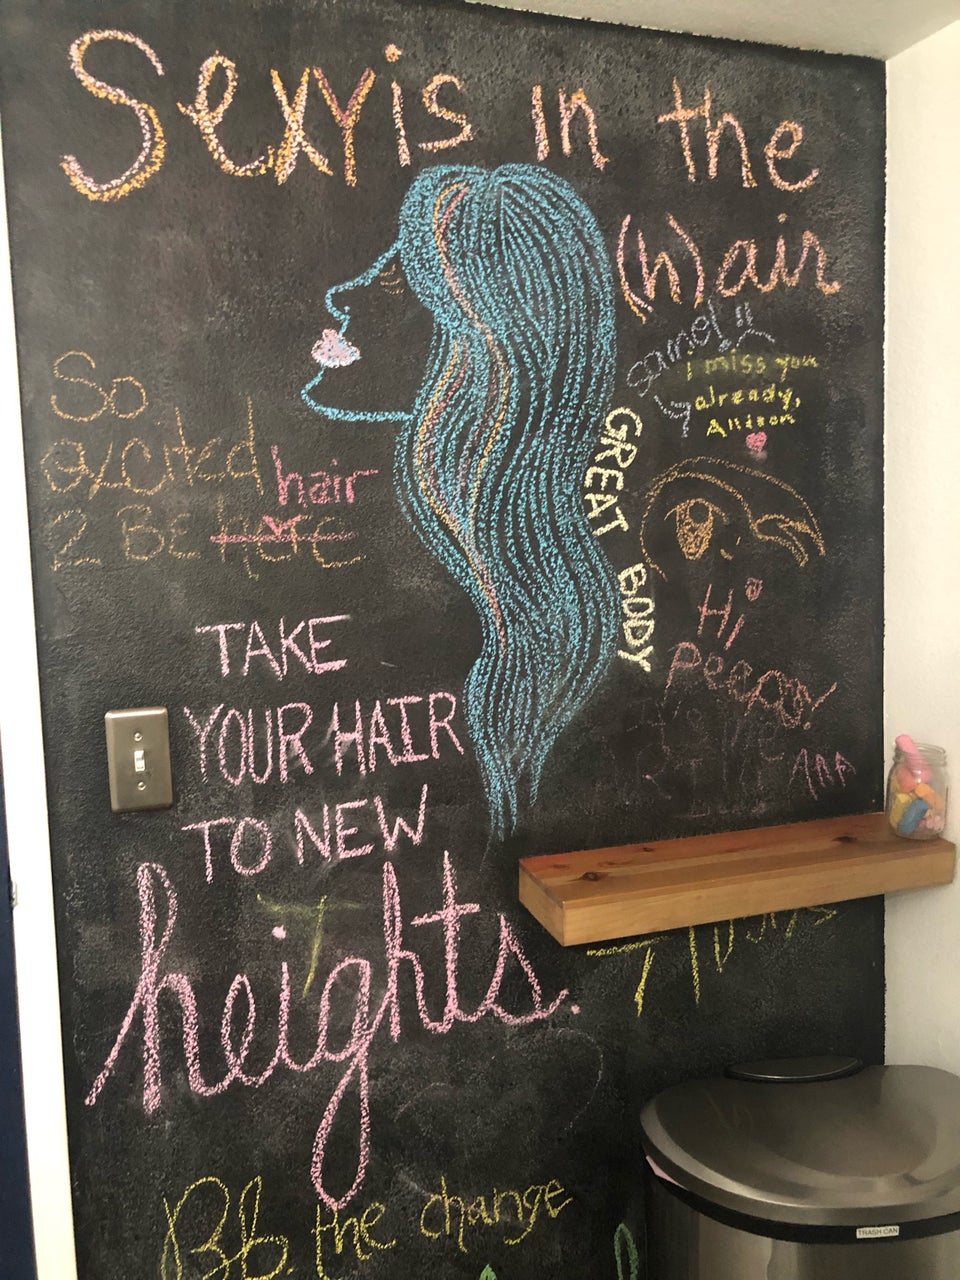 Sexy is in the
(h)air
same!!
i miss you
already,
Allison
So
excited
hair
2 BE HERE
GREAT BODY
Hi
Peeps!
TAKE
YOUR HAIR
TO NEW
heights.
Bb. the change
TRASH CAN